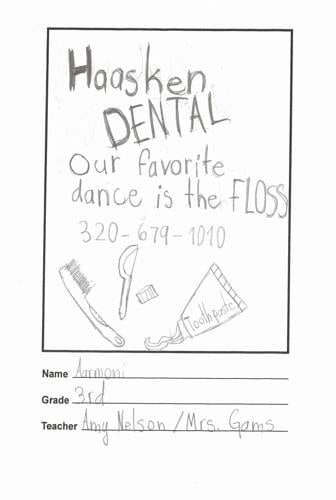 Haasken
DENTAL
Our favorite
dance is the FLOSS
320-679-1010
Toothpaste
Name Aarmoni
Grade 3rd
Teacher Amy Nelson / Mrs. Gams